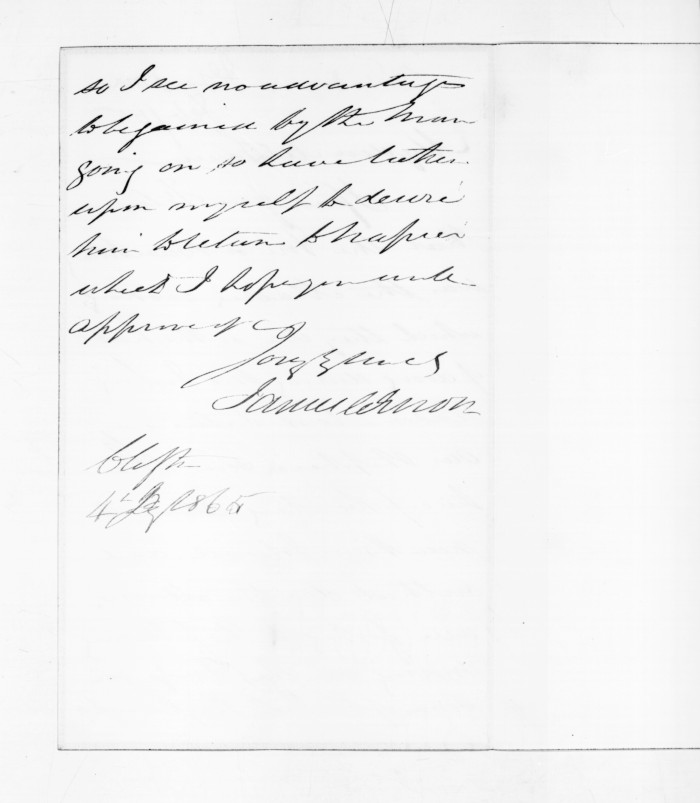 so I see no advantage
to be gained by the man
going on, so have taken
upon myself to desire
him to return to Napier
which I hope you will
approve of
Very truly yours
4 1865